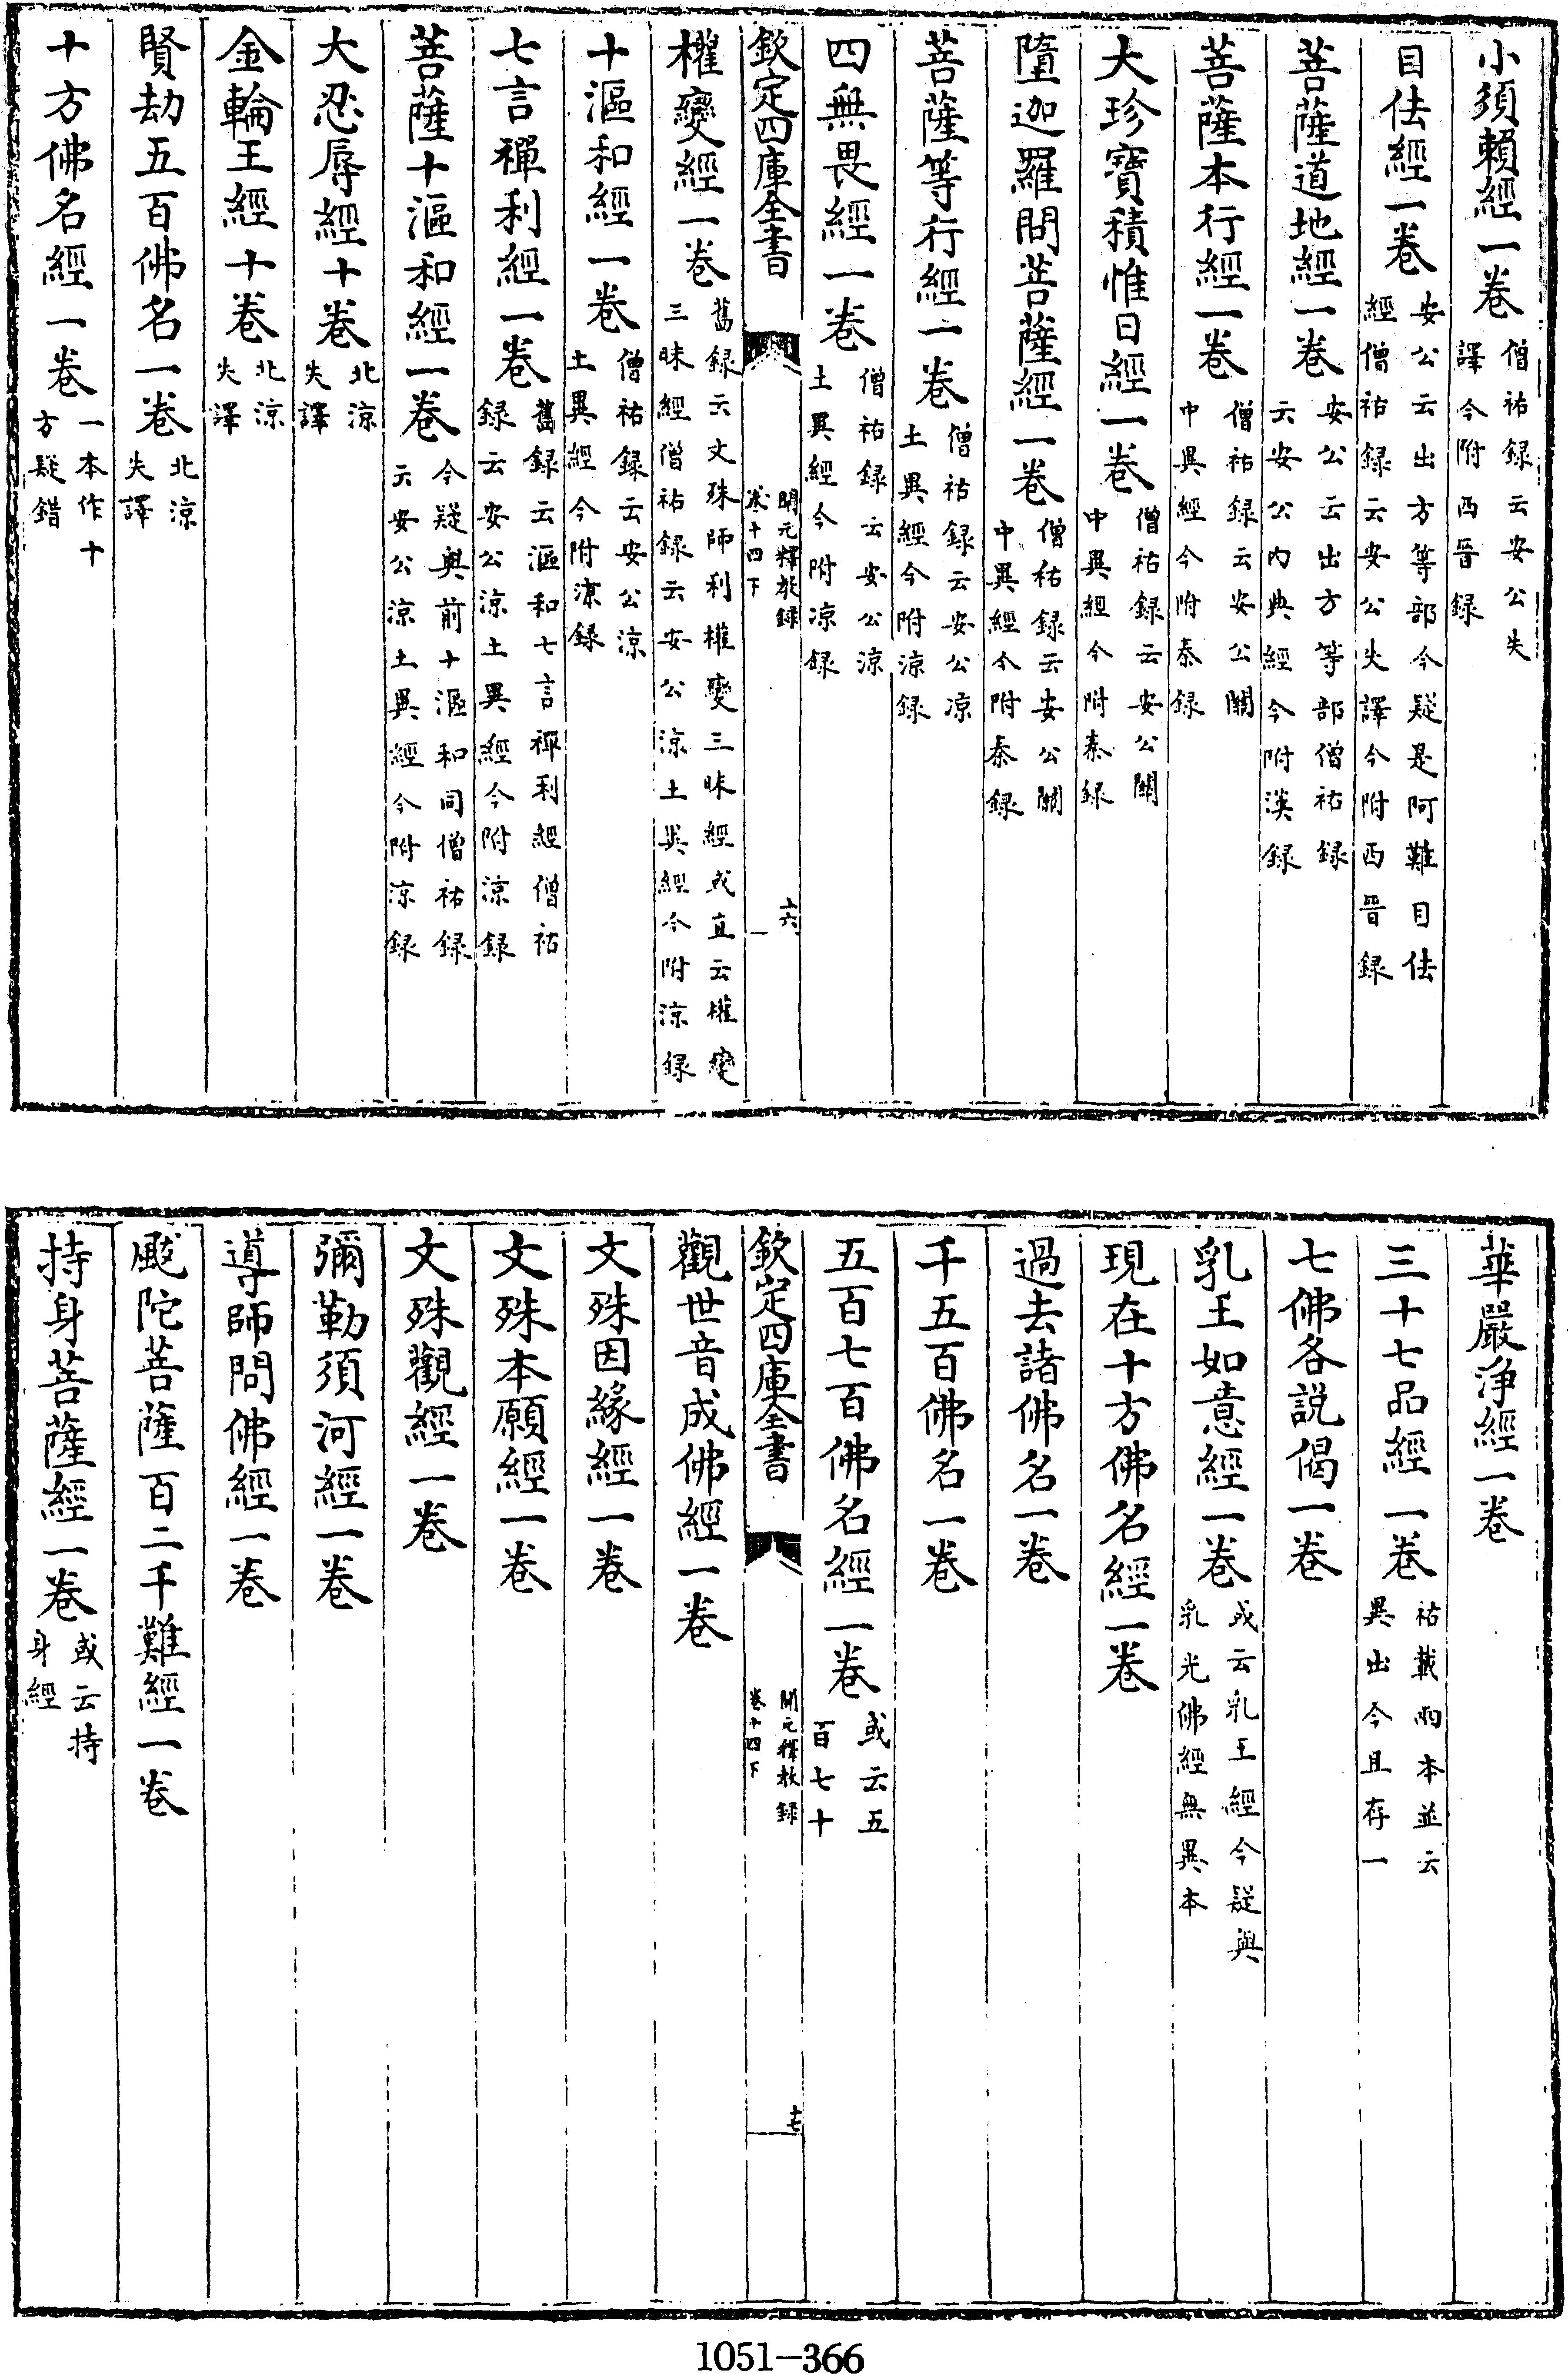 小須賴經一卷僧祐録云安公失譯今附西晉録
目佉經一卷安公云出方等部今疑是阿難目佉經僧祐録云安公失譯今附西晉録
菩薩道地經一卷安公云出方等部僧祐録云安公內典經今附漢録
菩薩本行經一卷僧祐録云安公關中異經今附秦録
大珍寶積惟日經一卷僧祐録云安公關中異經今附秦録
墮迦羅問菩薩經一卷僧祐録云安公關中異經今附秦録
菩薩等行經一卷僧祐録云安公涼土異經今附涼録
四無畏經一卷僧祐録云安公涼土異經今附涼録
欽定四庫全書 開元釋教録卷十四下 十六
權變經一卷舊録云文殊師利權變三昧經或直云權變三昧經僧祐録云安公涼土異經今附涼録
十漚和經一卷僧祐録云安公涼土異經今附涼録
七言禪利經一卷舊録云漚和七言禪利經僧祐録云安公涼土異經今附涼録
菩薩十漚和經一卷今疑與前十漚和同僧祐録云安公涼土異經今附涼録
大忍辱經十卷北涼失譯
金輪王經十卷北涼失譯
賢劫五百佛名一卷北涼失譯
十方佛名經一卷一本作十方疑錯
華嚴淨經一卷
三十七品經一卷祐載兩本並云異出今且存一
七佛各説偈一卷
乳王如意經一卷或云乳王經今疑與乳光佛經無異本
現在十方佛名經一卷
過去諸佛名一卷
千五百佛名一卷
五百七百佛名經一卷或云五百七十
欽定四庫全書 開元釋教録卷十四下 十七
觀世音成佛經一卷
文殊因緣經一卷
文殊本願經一卷
文殊觀經一卷
彌勒須河經一卷
導師問佛經一卷
颰陀菩薩百二千難經一卷
持身菩薩經一卷或云持身經
1051-366